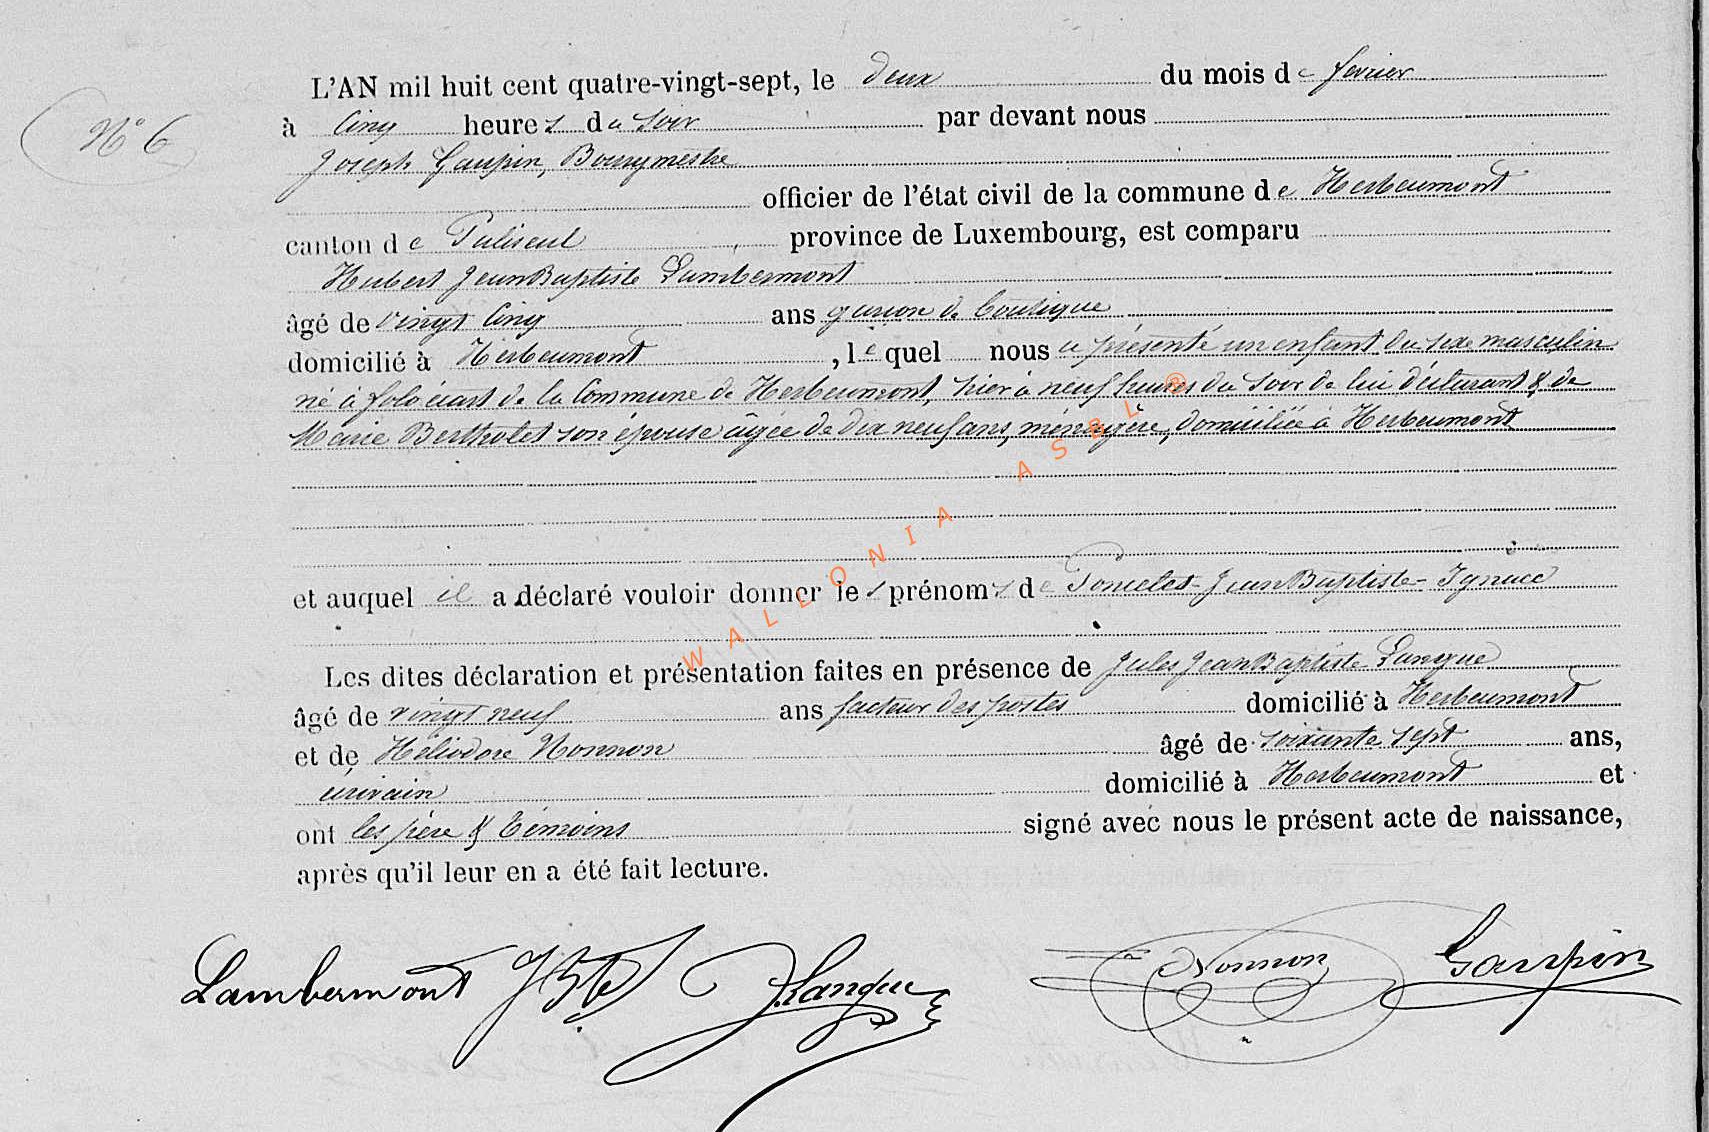 L'AN mil huit cent quatre-vingt-sept, le deux du mois de fevrier
N° 6
à Cinq heures du soir par devant nous
Joseph Gaupin, Bourgmestre
officier de l'état civil de la commune de Herbeumont
canton de Paliseul province de Luxembourg, est comparu
Hubert Jean Baptiste Lambermont
âgé de vingt Cinq ans garcon de boutique
domicilié à Herbeumont, lequel nous a présenté un enfant du sexe masculin
né à écart de la Commune de Herbeumont, hier à neuf heures du soir de lui déclarant & de
Marie Bertholet son épouse âgée de dix neuf ans, ménagère, domiciliée à Herbeumont
et auquel il a déclaré vouloir donner les prénoms de Poncelet Jean Baptiste Ignace
Les dites déclaration et présentation faites en présence de Jules Jean Baptiste Langue
âgé de vingt neuf ans facteur des postes domicilié à Herbeumont
et de Héliodore Nonnon âgé de soixante sept ans,
écrivain domicilié à Herbeumont et
ont les père & témoins signé avec nous le présent acte de naissance,
après qu'il leur en a été fait lecture.
Lambermont JBte J. Langue Nonnon Gaupin
WALLONIA ASBL ®